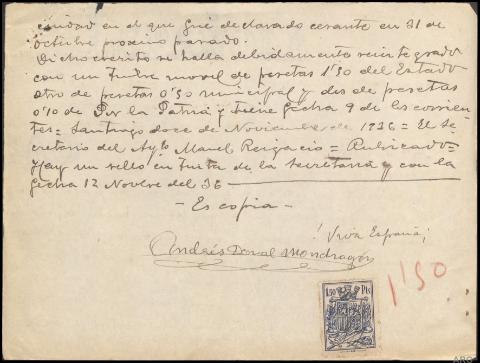 ciudad en el que fué declarado cesante en 31 de
octubre proximo pasado.
Dicho escrito se halla debidamente reintegrado
con un timbre movil de pesetas 1'50 del Estado
otro de pesetas 0'50 municipal y dos de pesetas
0'10 de Por la Patria y tiene fecha 9 de los corrien-
tes= Santiago doce de Noviembre de 1936= El Se-
cretario del Aytº Manuel Reigacio= Rubricado=
Hay un sello en tinta de la secretaria y con la
fecha 12 Novbre del 36
- Es copia -
¡Viva España¡
Andrés Mondragón
1'50
1,50 Pts
ARG